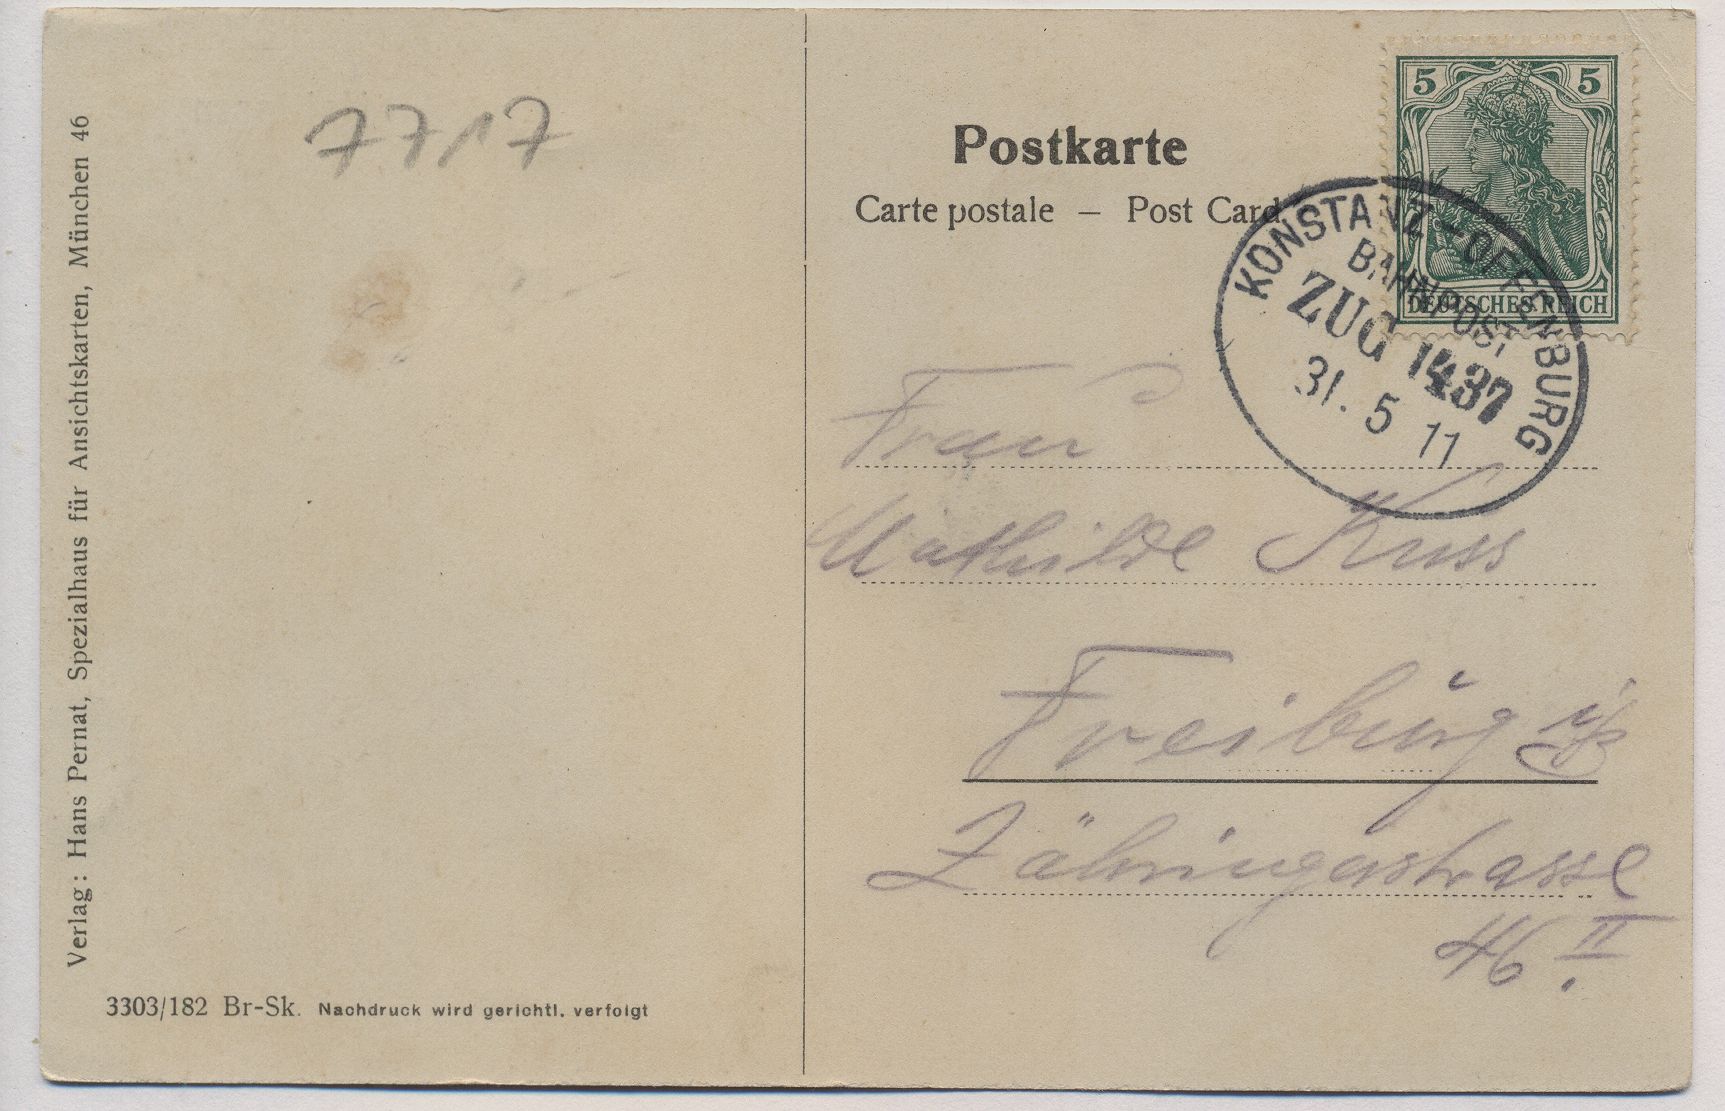 Verlag: Hans Pernat, Spezialhaus für Ansichtskarten, München 46
7717
3303/182 Br-Sk. Nachdruck wird gerichtl. verfolgt
Postkarte
Carte postale – Post Card.
5 5
DEUTSCHES REICH
KONSTANZ – OFFENBURG
BAHNPOST
ZUG 1437
31. 5 11
Frau
Mathilde Kuss
Freiburg i/B
Zähringerstrasse
46 II.